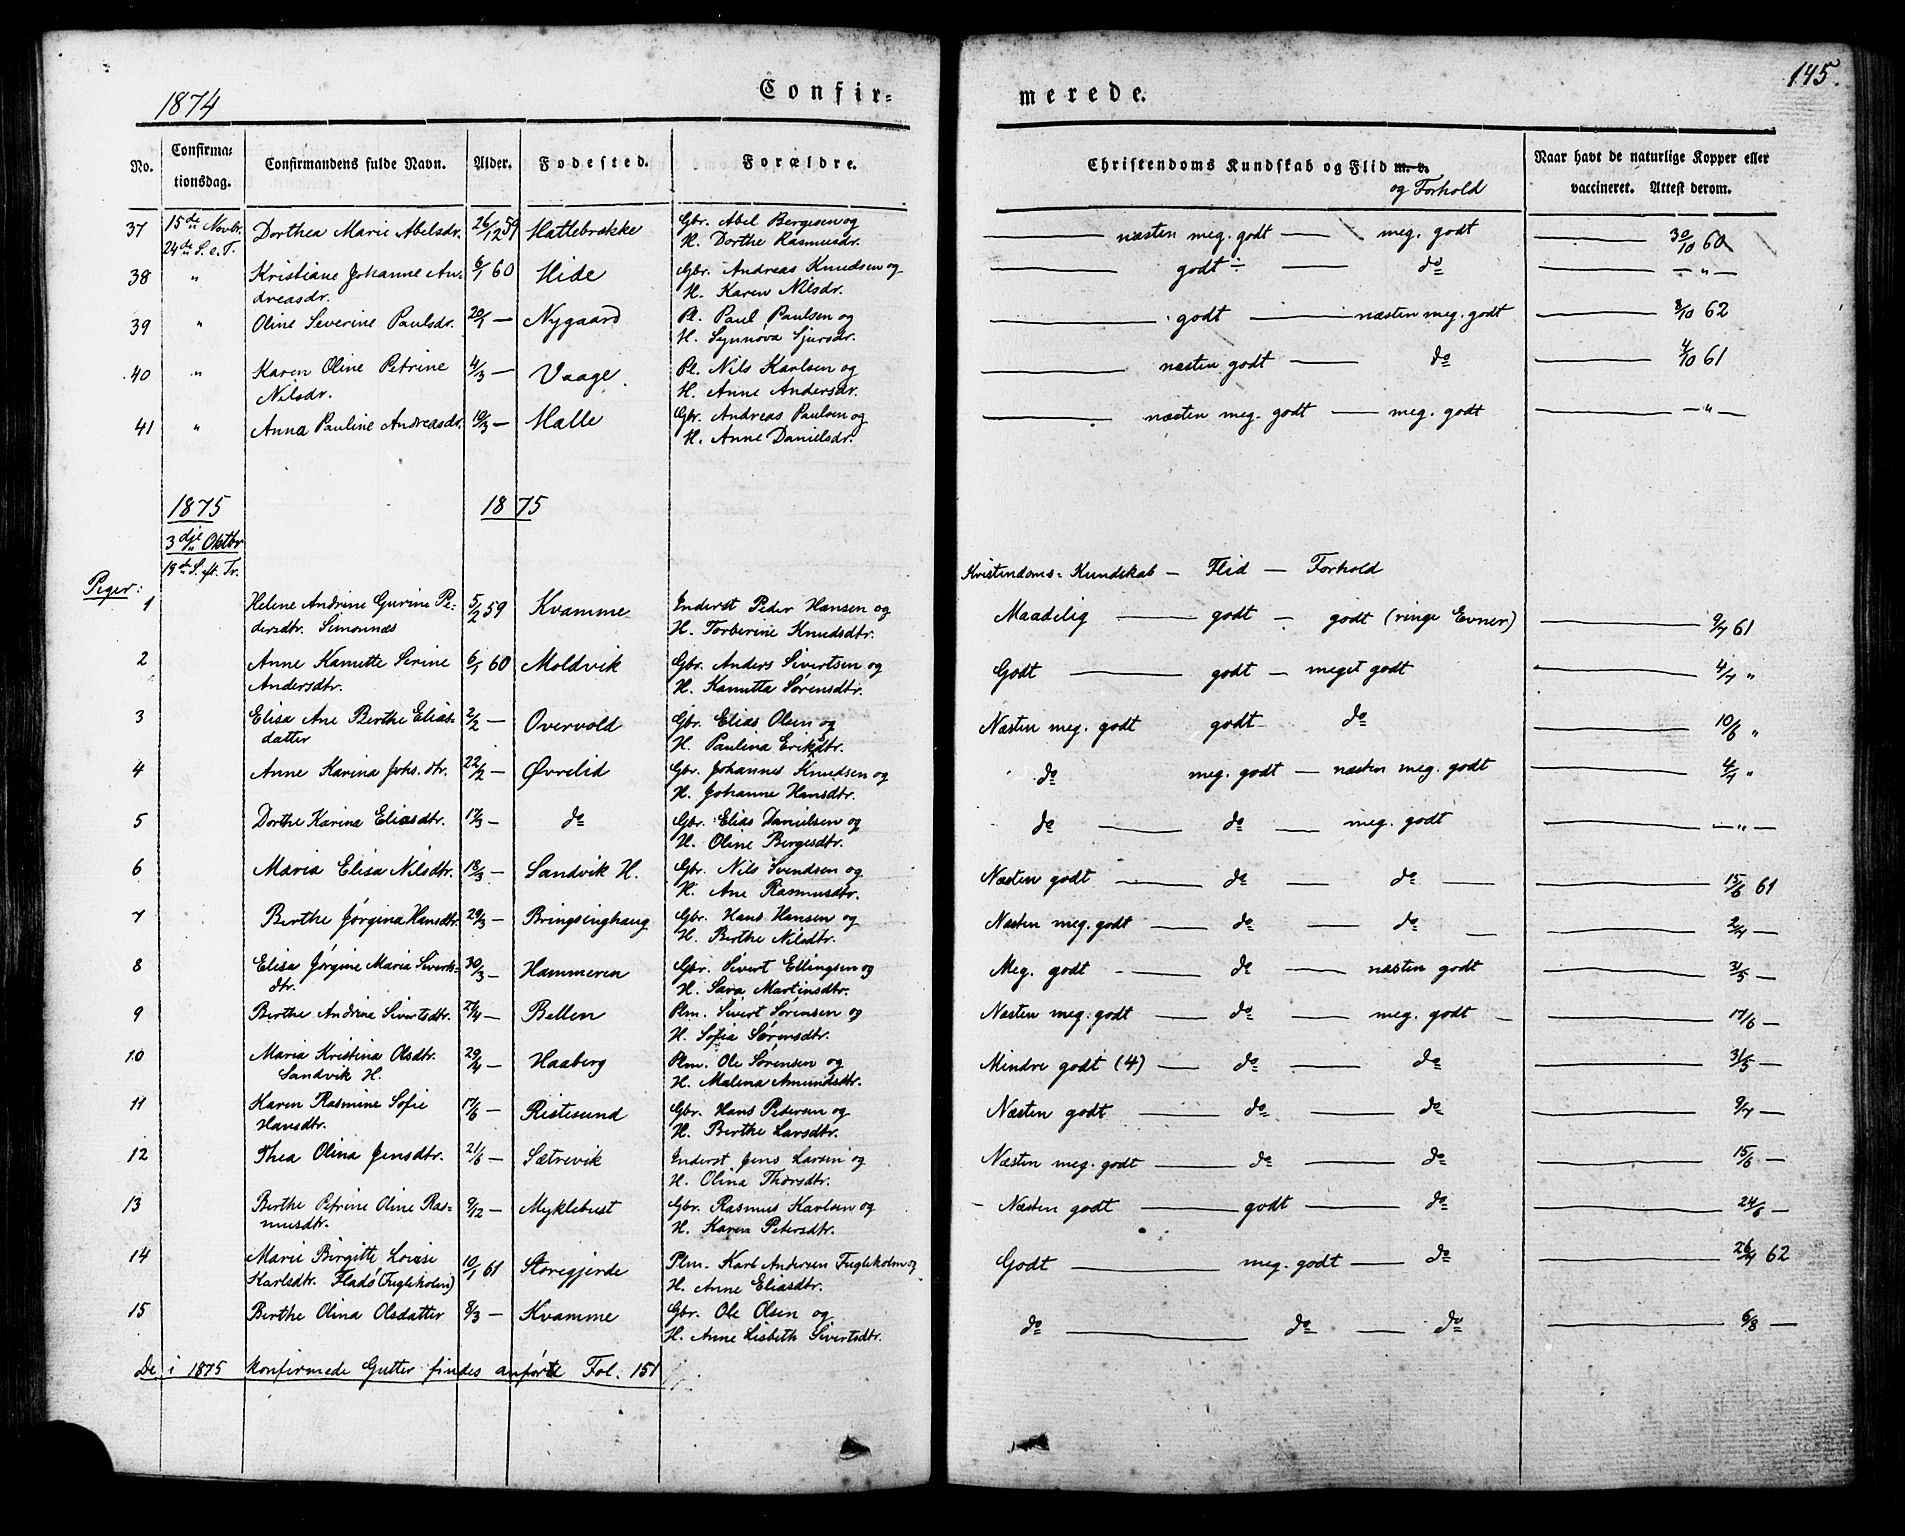 1874 Confir=
merede. 145.
No. Confirma=tionsdag. Confirmandens fulde Navn. Alder. Fødested. Forældre.
Christendoms Kundskab og Flid m. v. og Forhold
Naar havt de naturlige Kopper eller vaccineret. Attest derom.
37 15de Novbr. Dorthea Marie Abelsdr. 26/12 59 Hattebrække Gbr. Abel Bergesen og — næsten meg. godt — meg. godt — 30/10 60
24de S. e. T. H. Dorthe Rasmusdr.
38 " Kristiane Johanne An- 6/1 60 Hide Gbr. Andreas Knudsen og — godt ÷ — do — — " —
dreasdr. H. Karen Nilsdr.
39 " Oline Severine Paulsdr. 20/1 — Nygaard Pl. Paul Paulsen og — godt — næsten meg. godt — 8/10 62
H. Synnöva Sjursdr.
40 " Karen Oline Petrine 4/3 — Vaage Pl. Nils Karlsen og — næsten godt — do — 4/10 61
Nilsdr. H. Anne Andersdr.
41 " Anna Pauline Andreasdr. 19/3 — Halle Gbr. Andreas Paulsen og — næsten meg. godt — meg. godt — — " —
H. Anne Danielsdr.
1875 1875
3dje Oktbr
19de S. eft. Tr. Kristendoms=Kundskab — Flid — Forhold
Piger:
1 Helene Andrine Gurine Pe- 5/2 59 Kvamme Inderst Peder Hansen og Maadelig — godt — godt (ringe Evner) — 9/7 61
dersdtr. Simonnæs H. Torberine Knudsdtr.
2 Anne Kanutte Serine 6/1 60 Moldvik Gbr. Anders Sivertsen og Godt — godt — meget godt — 4/7 "
Andersdtr. H. Kanutta Sørensdtr.
3 Elisa Ane Berthe Elias- 2/2 — Overvold Gbr. Elias Olsen og Næsten meg. godt godt do — 10/6 "
datter H. Paulina Eriksdtr.
4 Anne Karina Johs. dtr. 22/2 — Øvrelid Gbr. Johannes Knudsen og do meg. godt — næsten meg. godt — 4/7 "
H. Johanne Hansdtr.
5 Dorthe Karina Eliasdtr. 17/3 — do Gbr. Elias Danielsen og do — do — meg. godt — — " —
H. Oline Bergesdtr.
6 Maria Elisa Nilsdtr. 18/3 — Sandvik H. Gbr. Nils Svendsen og Næsten godt — do — do — — 15/6 61
H. Ane Rasmusdtr.
7 Berthe Jørgina Hansdtr. 29/3 — Bringsinghaug Gbr. Hans Hansen og Næsten meg. godt — do — do — — 2/7 —
H. Berthe Nilsdtr.
8 Elisa Jørgine Maria Siverts- 30/3 — Hammeren Gbr. Sivert Ellingsen og Meg. godt — do — næsten godt — 31/5 —
dtr. H. Sara Martinsdtr.
9 Berthe Andrine Sivertsdtr. 27/4 — Bellen Plm. Sivert Sørensen og Næsten meg. godt — do — meg. godt — — 17/6 —
H. Sofia Sørensdtr.
10 Maria Kristina Olsdtr. 29/4 — Haaberg Plm. Ole Sørensen og Mindre godt (4) — do — do — 31/5 —
Sandvik H. H. Malena Amundsdtr.
11 Karen Rasmine Sofie 17/6 — Ristesund Gbr. Hans Pedersen og Næsten godt — do — do — 9/7 —
Hansdtr. H. Berthe Larsdtr.
12 Thea Olina Jensdtr. 21/6 — Sætrevik Inderst Jens Larsen og Næsten meg. godt — do — do — 15/6 —
H. Olina Thorsdtr.
13 Berthe Petrine Oline Ras- 9/12 — Myklebust Gbr. Rasmus Karlsen og Næsten godt — godt — do — 24/6 —
musdtr. H. Karen Petersdtr.
14 Marie Birgitte Lovise 10/1 61 Storegjerde Plm. Karl Andersen Fugleholm og Godt — meg. godt — do — 26/7 62
Karlsdtr. Fladö (Fugleholm) H. Anne Eliasdtr.
15 Berthe Olina Olsdatter 8/3 — Kvamme Gbr. Ole Olsen og do — do — do — 6/8 —
H. Anne Lisbeth Sivertsdtr.
De i 1875 konfirmede Gutter findes anførte Fol. 151